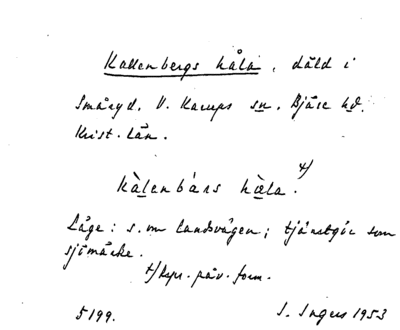 Kallenbergs håla, däld i
Småryd. V. Karups sn. Bjäre hd.
Krist. län.
kàlenbárs hæ̀la. +)
Läge: s. om landsvägen; tjänstgör som
sjömärke.
+) Repr. påv. form.
5199. I. Ingers 1953